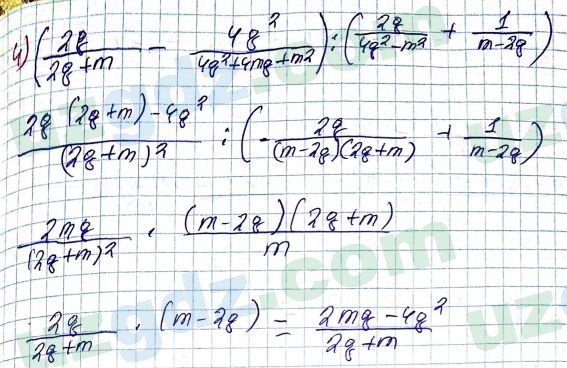 4) (2q/(2q+m) − 4q²/(4q²+4mq+m²)) : (2q/(4q²−m²) + 1/(m−2q))
(2q (2q+m)−4q²)/(2q+m)² : (−2q/((m−2q)(2q+m)) + 1/(m−2q))
2mq/(2q+m)² · (m−2q)(2q+m)/m
2q/(2q+m) · (m−2q) = (2mq−4q²)/(2q+m)
uzgdz.com